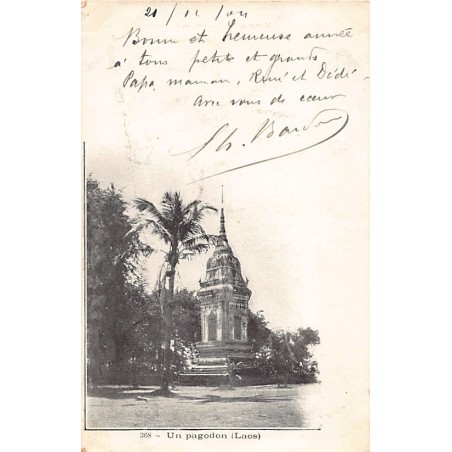 21/12/04
Bonne et heureuse année
à tous petits et grands
Papa, maman, René et Dédé
de cœur
Ch.
368 – Un pagodon (Laos)